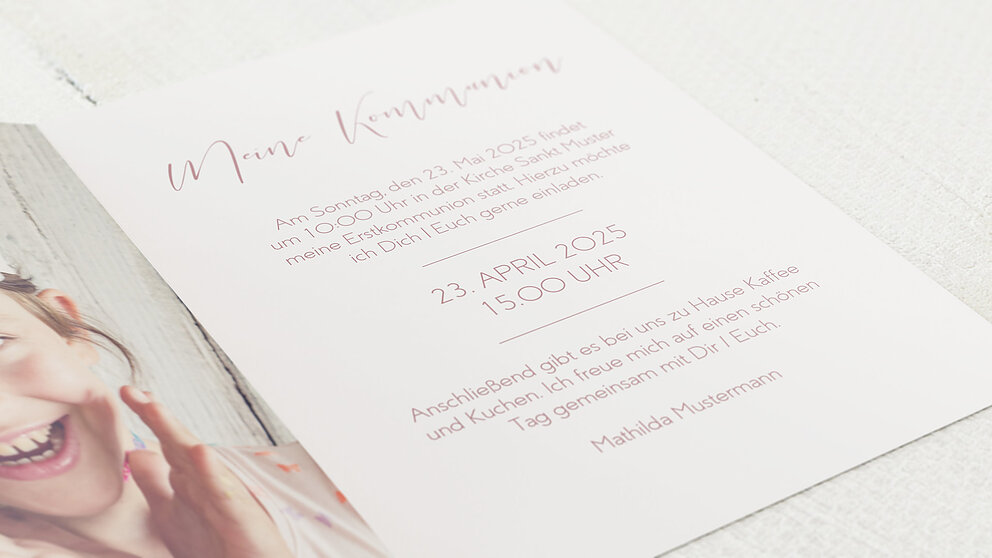 Meine Kommunion
Am Sonntag, den 23. Mai 2025 findet
um 10:00 Uhr in der Kirche Sankt Muster
meine Erstkommunion statt. Hierzu möchte
ich Dich | Euch gerne einladen.
23. APRIL 2025
15.00 UHR
Anschließend gibt es bei uns zu Hause Kaffee
und Kuchen. Ich freue mich auf einen schönen
Tag gemeinsam mit Dir | Euch.
Mathilda Mustermann